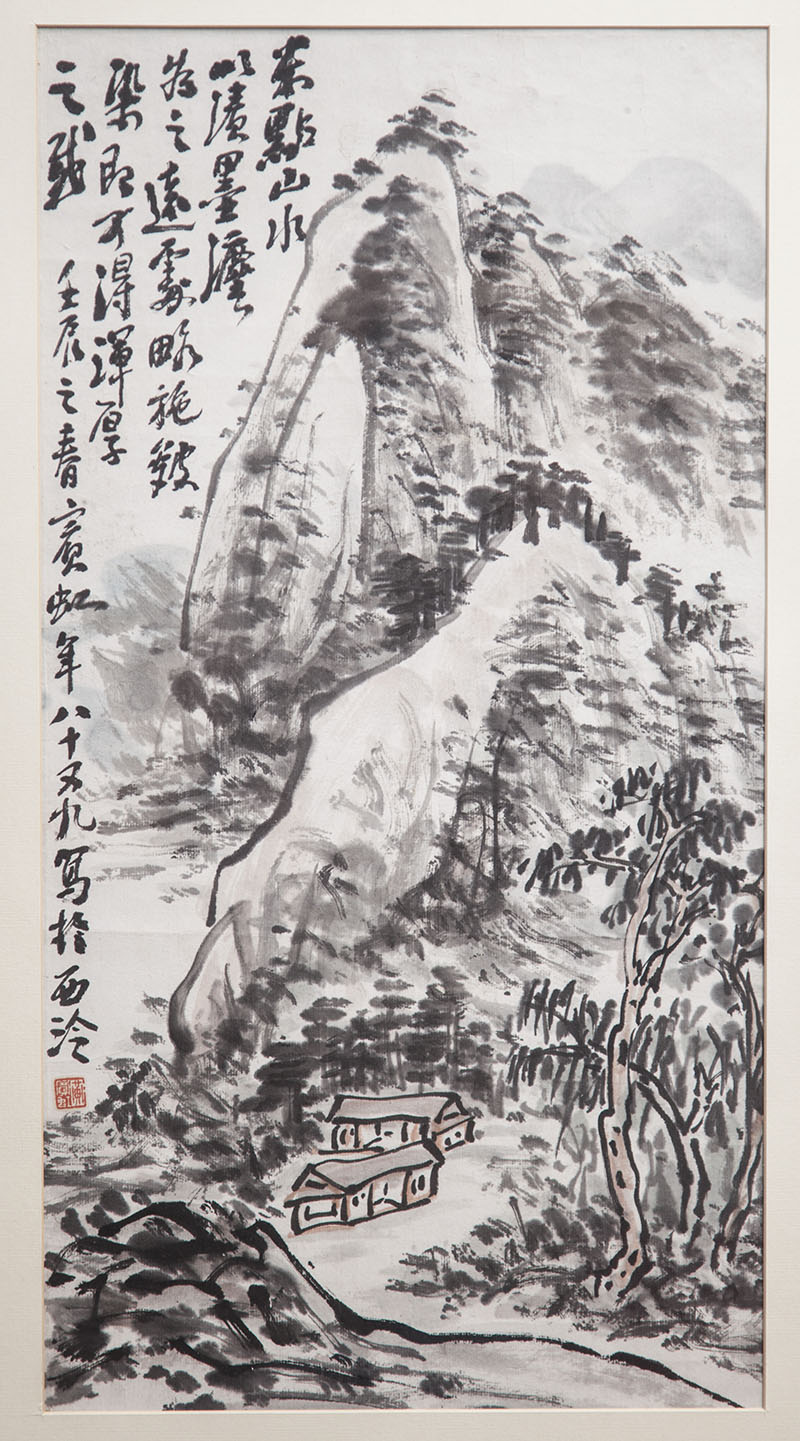 米點山水
以漬墨灋
為之遠處略施皴
染即可得渾厚
之致
壬辰之春賓虹年八十又九寫於西泠